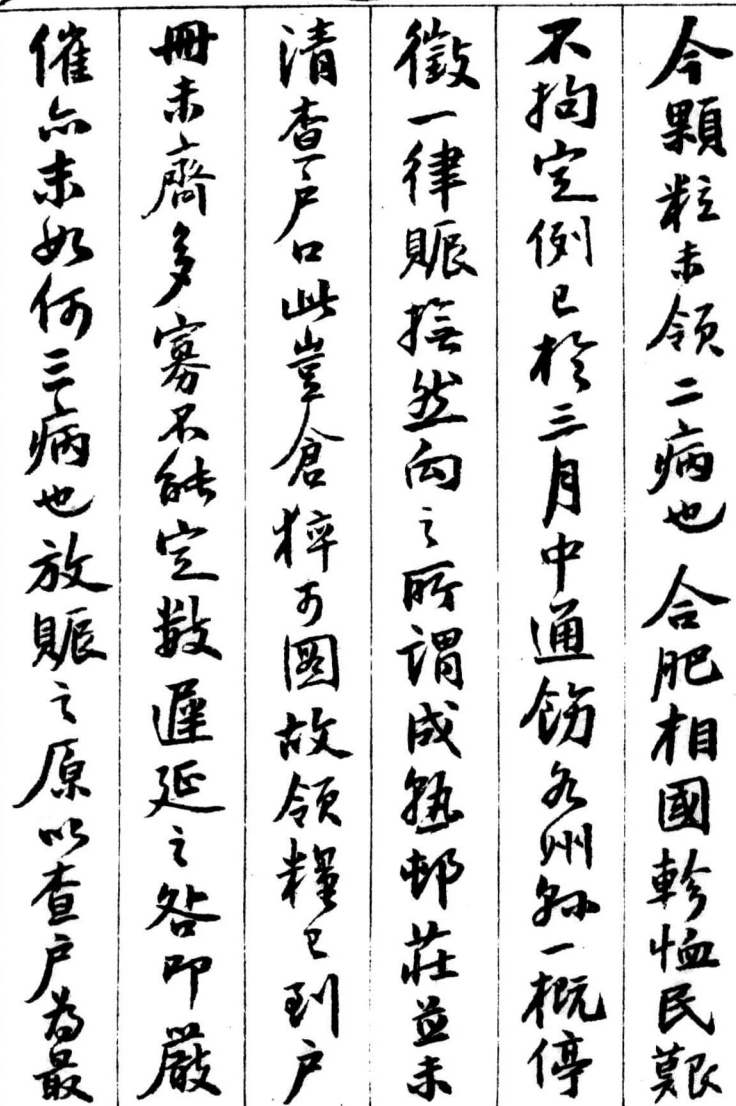 今顆粒未領二病也 合肥相國軫恤民艱
不拘定例已於三月中通飭各州縣一概停
徵一律賑撫然向之所謂成熟邨莊並未
清查戶口此豈倉猝可圖故領糧已到戶
冊未齊多寡不能定數遲延之咎即嚴
催亦未如何三病也放賑之原以查戶為最